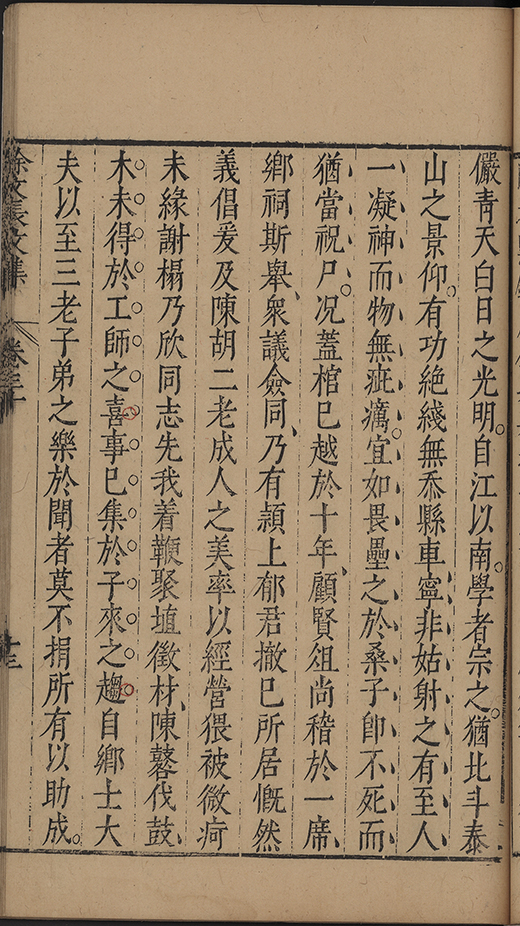 儼青天白日之光明。自江以南。學者宗之。猶北斗泰
山之景仰。有功絶綫無忝縣車寧非姑射之有至人
一凝神而物無疵癘。宜如畏壘之於桑子卽不死而
猶當祝尸。况蓋棺已越於十年、顧賢俎尚稽於一席、
鄉祠斯舉、衆議僉同、乃有潁上郁君撤已所居慨然
義倡爰及陳胡二老成人之美率以經營猥被微疴
未緣謝榻乃欣同志先我着鞭聚埴徵材、陳鼛伐鼓、
木未得於工師之喜事已集於子來之趨自鄉士大
夫以至三老子弟之樂於聞者莫不捐所有以助成。
徐文長文集 卷三十 十三